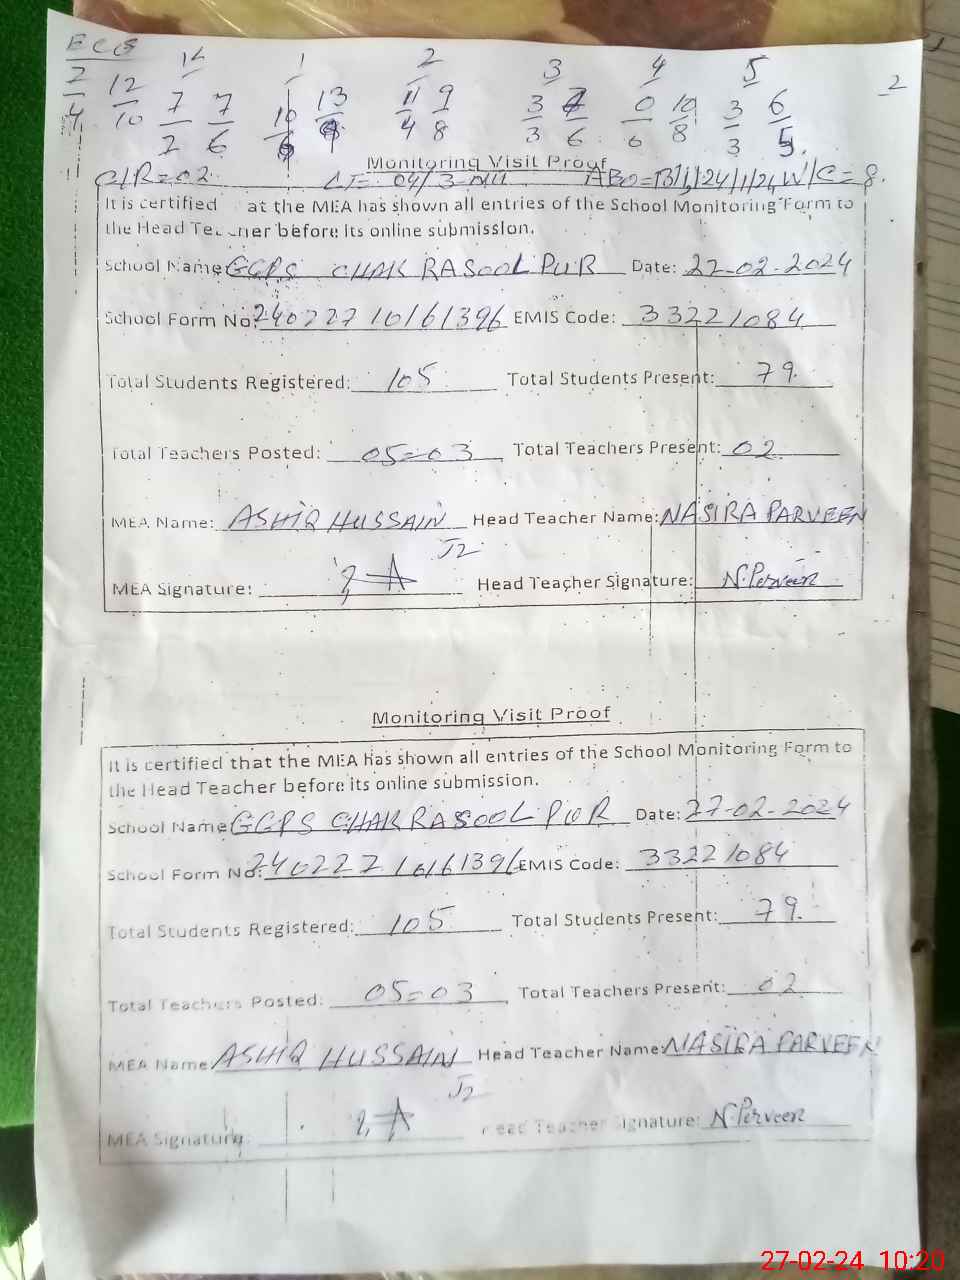 ECS 1 2 3 4 5
2/4 12/10 7/2 7/6 13 11/4 9/8 3/3 0/6 10/8 3/3 6/5 2
Monitoring Visit Proof
C/R=02.
It is certified at the MEA has shown all entries of the School Monitoring Form to
the Head Teacher before its online submission.
School Name GGPS CHAK RASOOL PUR Date: 27-02-2024
School Form No: 24022710161396 EMIS Code: 33221084
Total Students Registered: 105 Total Students Present: 79.
Total Teachers Posted: 05=03 Total Teachers Present: 02
MEA Name: ASHIQ HUSSAIN Head Teacher Name: NASIRA PARVEEN
J2
MEA Signature: Head Teacher Signature: N.Perveen
Monitoring Visit Proof
It is certified that the MEA has shown all entries of the School Monitoring Form to
the Head Teacher before its online submission.
School Name GGPS CHAK RASOOL PUR Date: 27-02-2024
School Form No: 24022710161396 EMIS Code: 33221084
Total Students Registered: 105 Total Students Present: 79.
Total Teachers Posted: 05=03 Total Teachers Present: 02
MEA Name ASHIQ HUSSAIN Head Teacher Name: NASIRA PARVEEN
J2
MEA Signature: Head Teacher Signature: N.Perveen
27-02-24 10:20